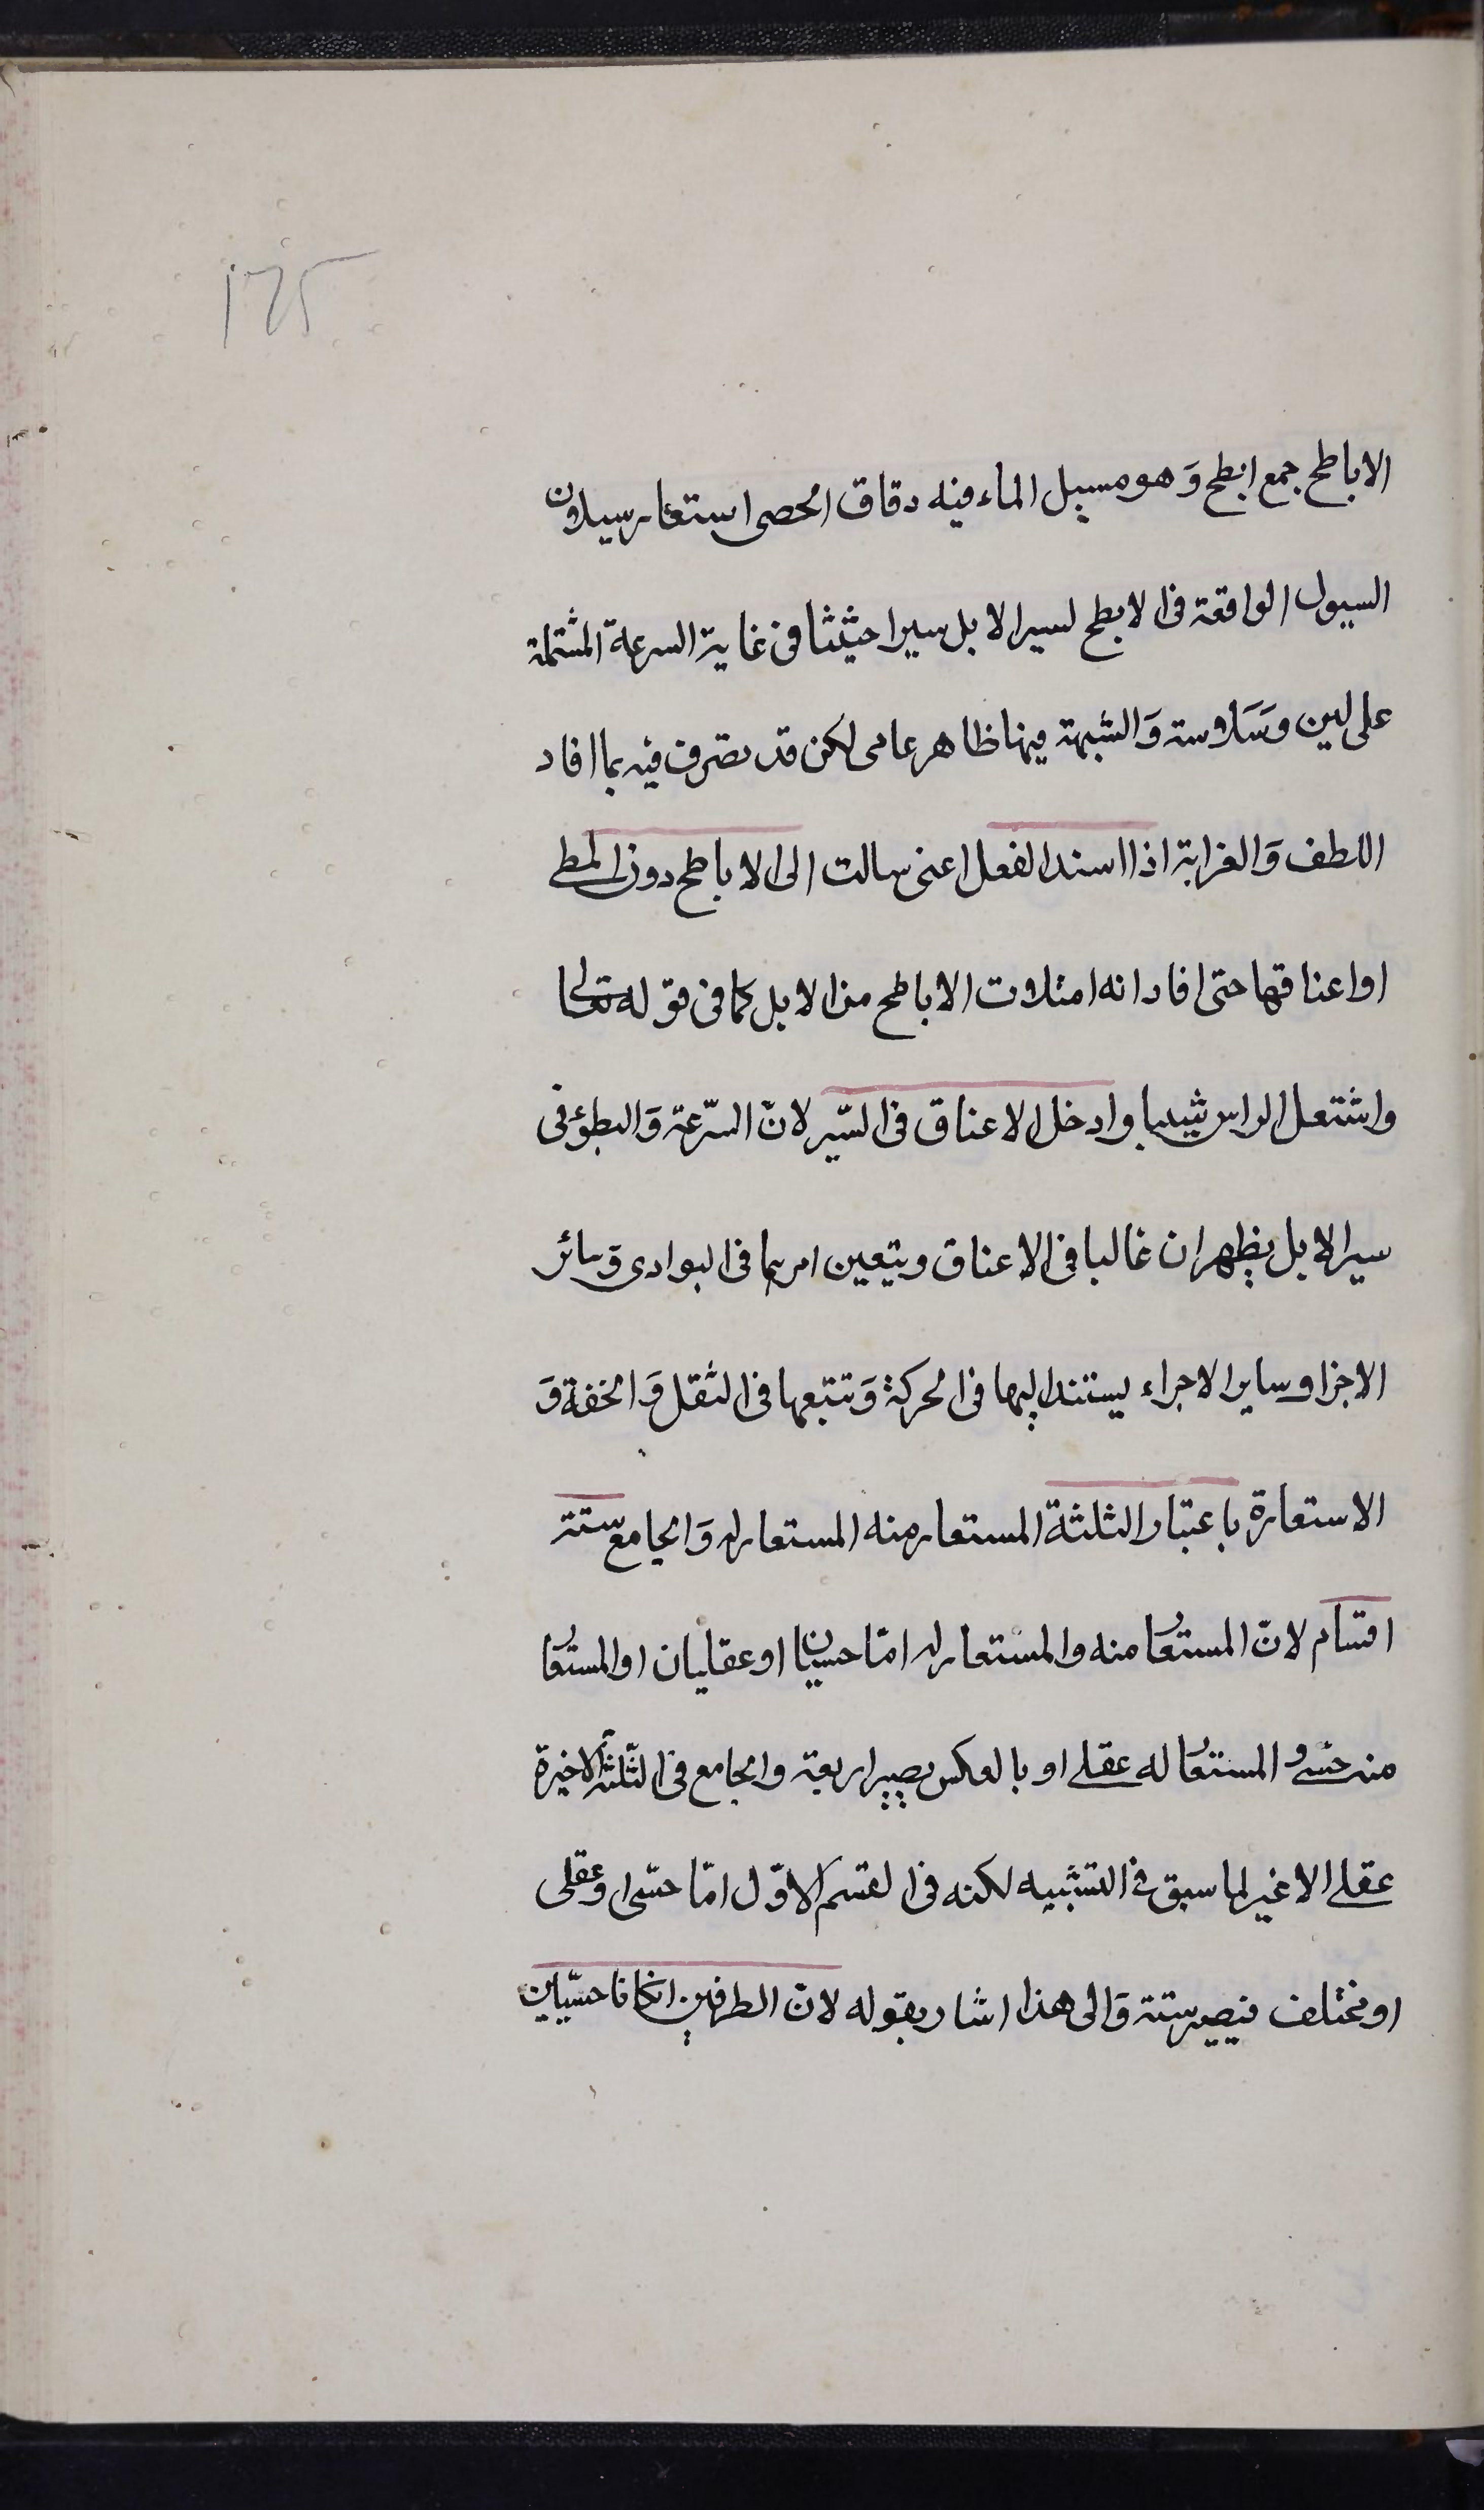 ١٦٥
الاباطح جمع ابطح وَهو مسيل الماء فيه دقاق الحصى استعار سيلان
السيول الواقعة فى الابطح لسير الابل سيرا حثيثا فى غاية السرعة المشتملة
على لين وسَلاسة وَالشبهة فيها ظاهر عامى لكن قد تصرف فيه بما افاد
اللطف وَالغرابة اذا اسند الفعل اعنى سالت الى الاباطح دون المطى
او اعناقها حتى افاد انه امتلات الاباطح من الابل كما فى قوله تعالى
واشتعل الراس شيبا وادخل الاعناق فى السّير لانّ السّرعة وَالبطؤ فى
سير الابل يظهران غالبا فى الاعناق ويتعين امرهما فى البوادى وَسائر
الاجزا وساير الاجراء يستند اليها فى الحركة وَتتبعها فى الثقل وَالخفة وَ
الاستعارة باعتبار الثلثة المستعار منه المستعار له وَالجامع ستة
اقسام لانّ المستعار منه والمستعار له امّا حسيان او عقليان او المستعار
منه حسّى و المستعار له عقلى او بالعكس يصير اربعة والجامع فى الثّلثة الاخيرة
عقلى لا غير لما سبق فى التشبيه لكنه فى القسم الاوّل امّا حسّى او عقلى
او مختلف فيصير ستة وَالى هذا اشار بقوله لانّ الطرفين انكانا حسّيّين